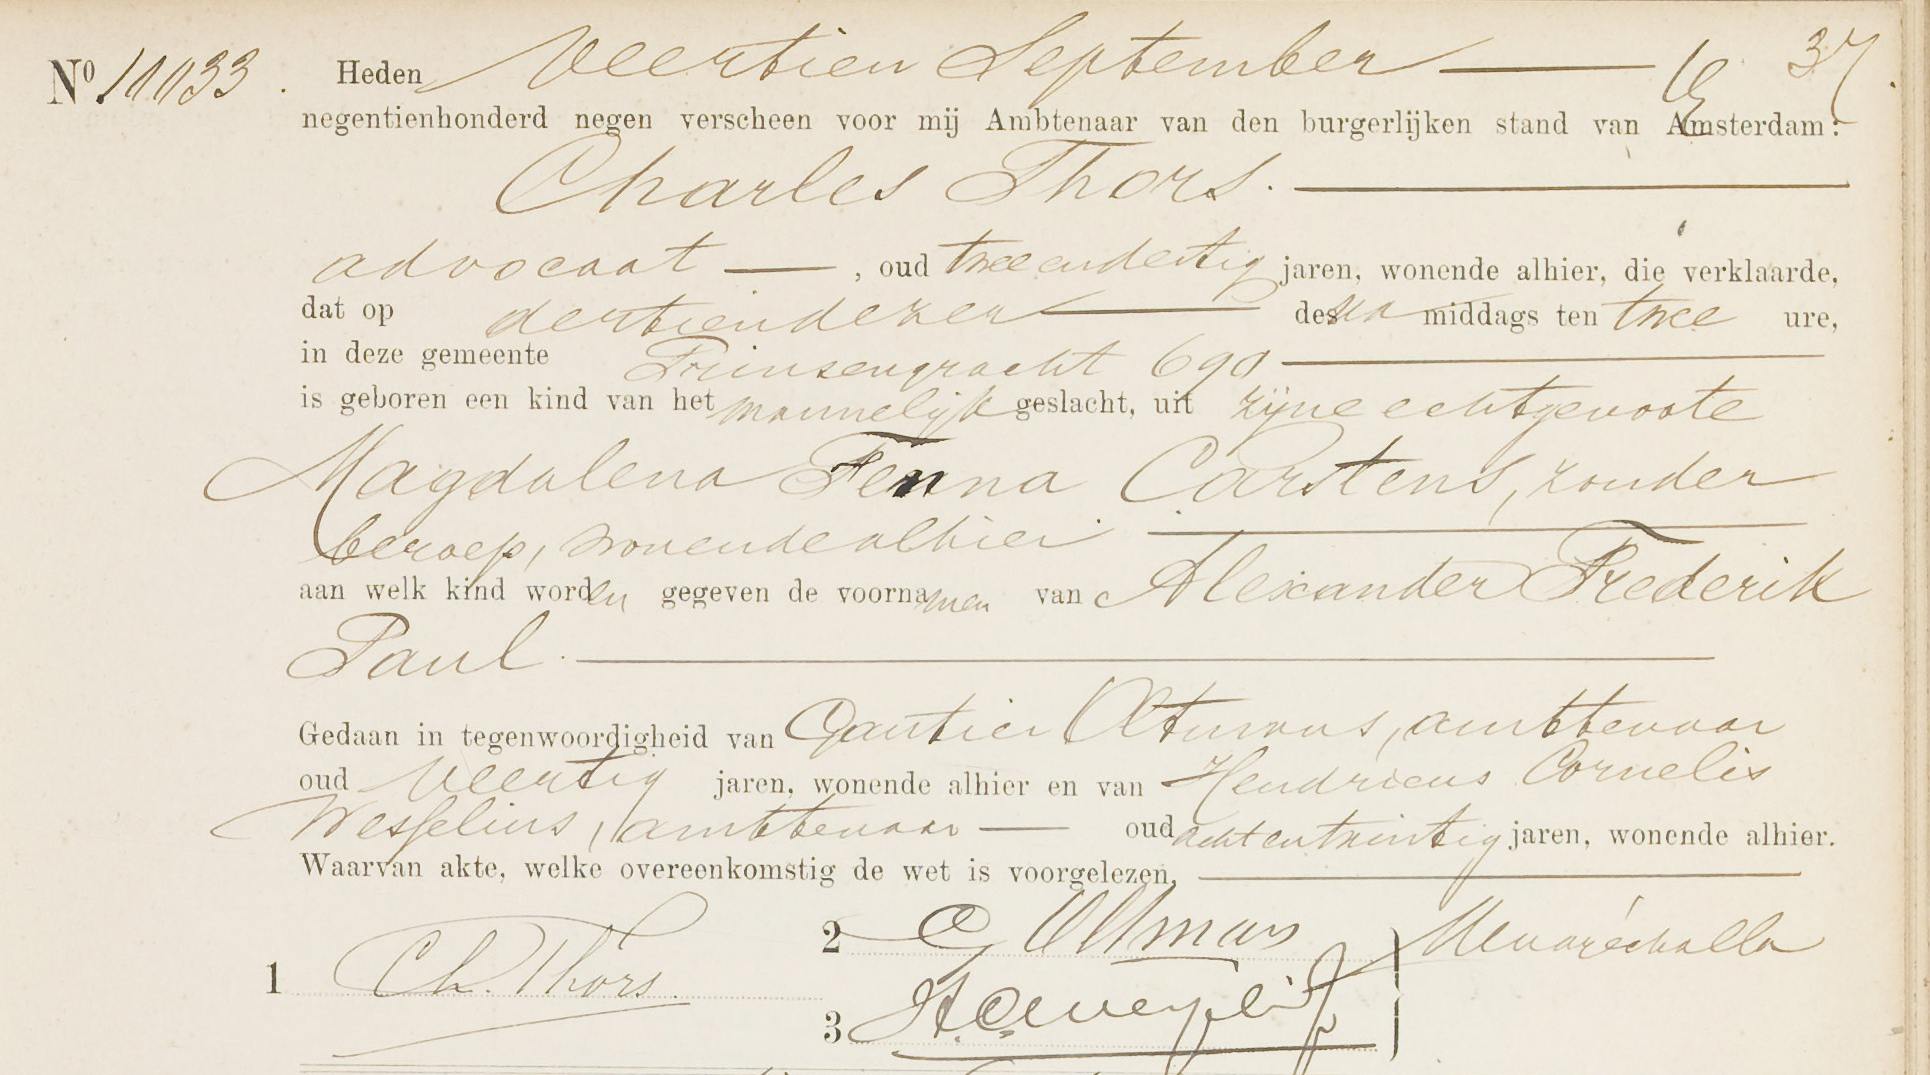 No 11033. Heden Veertien September — 37.
negentienhonderd negen verscheen voor mij Ambtenaar van den burgerlijken stand van Amsterdam:
Charles Thors. —
advocaat — , oud tweeendertig jaren, wonende alhier, die verklaarde,
dat op dertiendezer — des na middags ten twee ure,
in deze gemeente Prinsengracht 690 —
is geboren een kind van het mannelijk geslacht, uit zijne echtgenoote
Magdalena Fenna Carstens, zonder
beroep, wonende alhier —
aan welk kind worden gegeven de voornamen van Alexander Frederik
Paul. —
Gedaan in tegenwoordigheid van Gautier Oltmans, ambtenaar
oud Veertig jaren, wonende alhier en van Hendricus Cornelis
Wesselius, ambtenaar — oud achtentwintig jaren, wonende alhier.
Waarvan akte, welke overeenkomstig de wet is voorgelezen, —
1 Ch. Thors.
2 G Oltmans
3 H. C. Wesselius